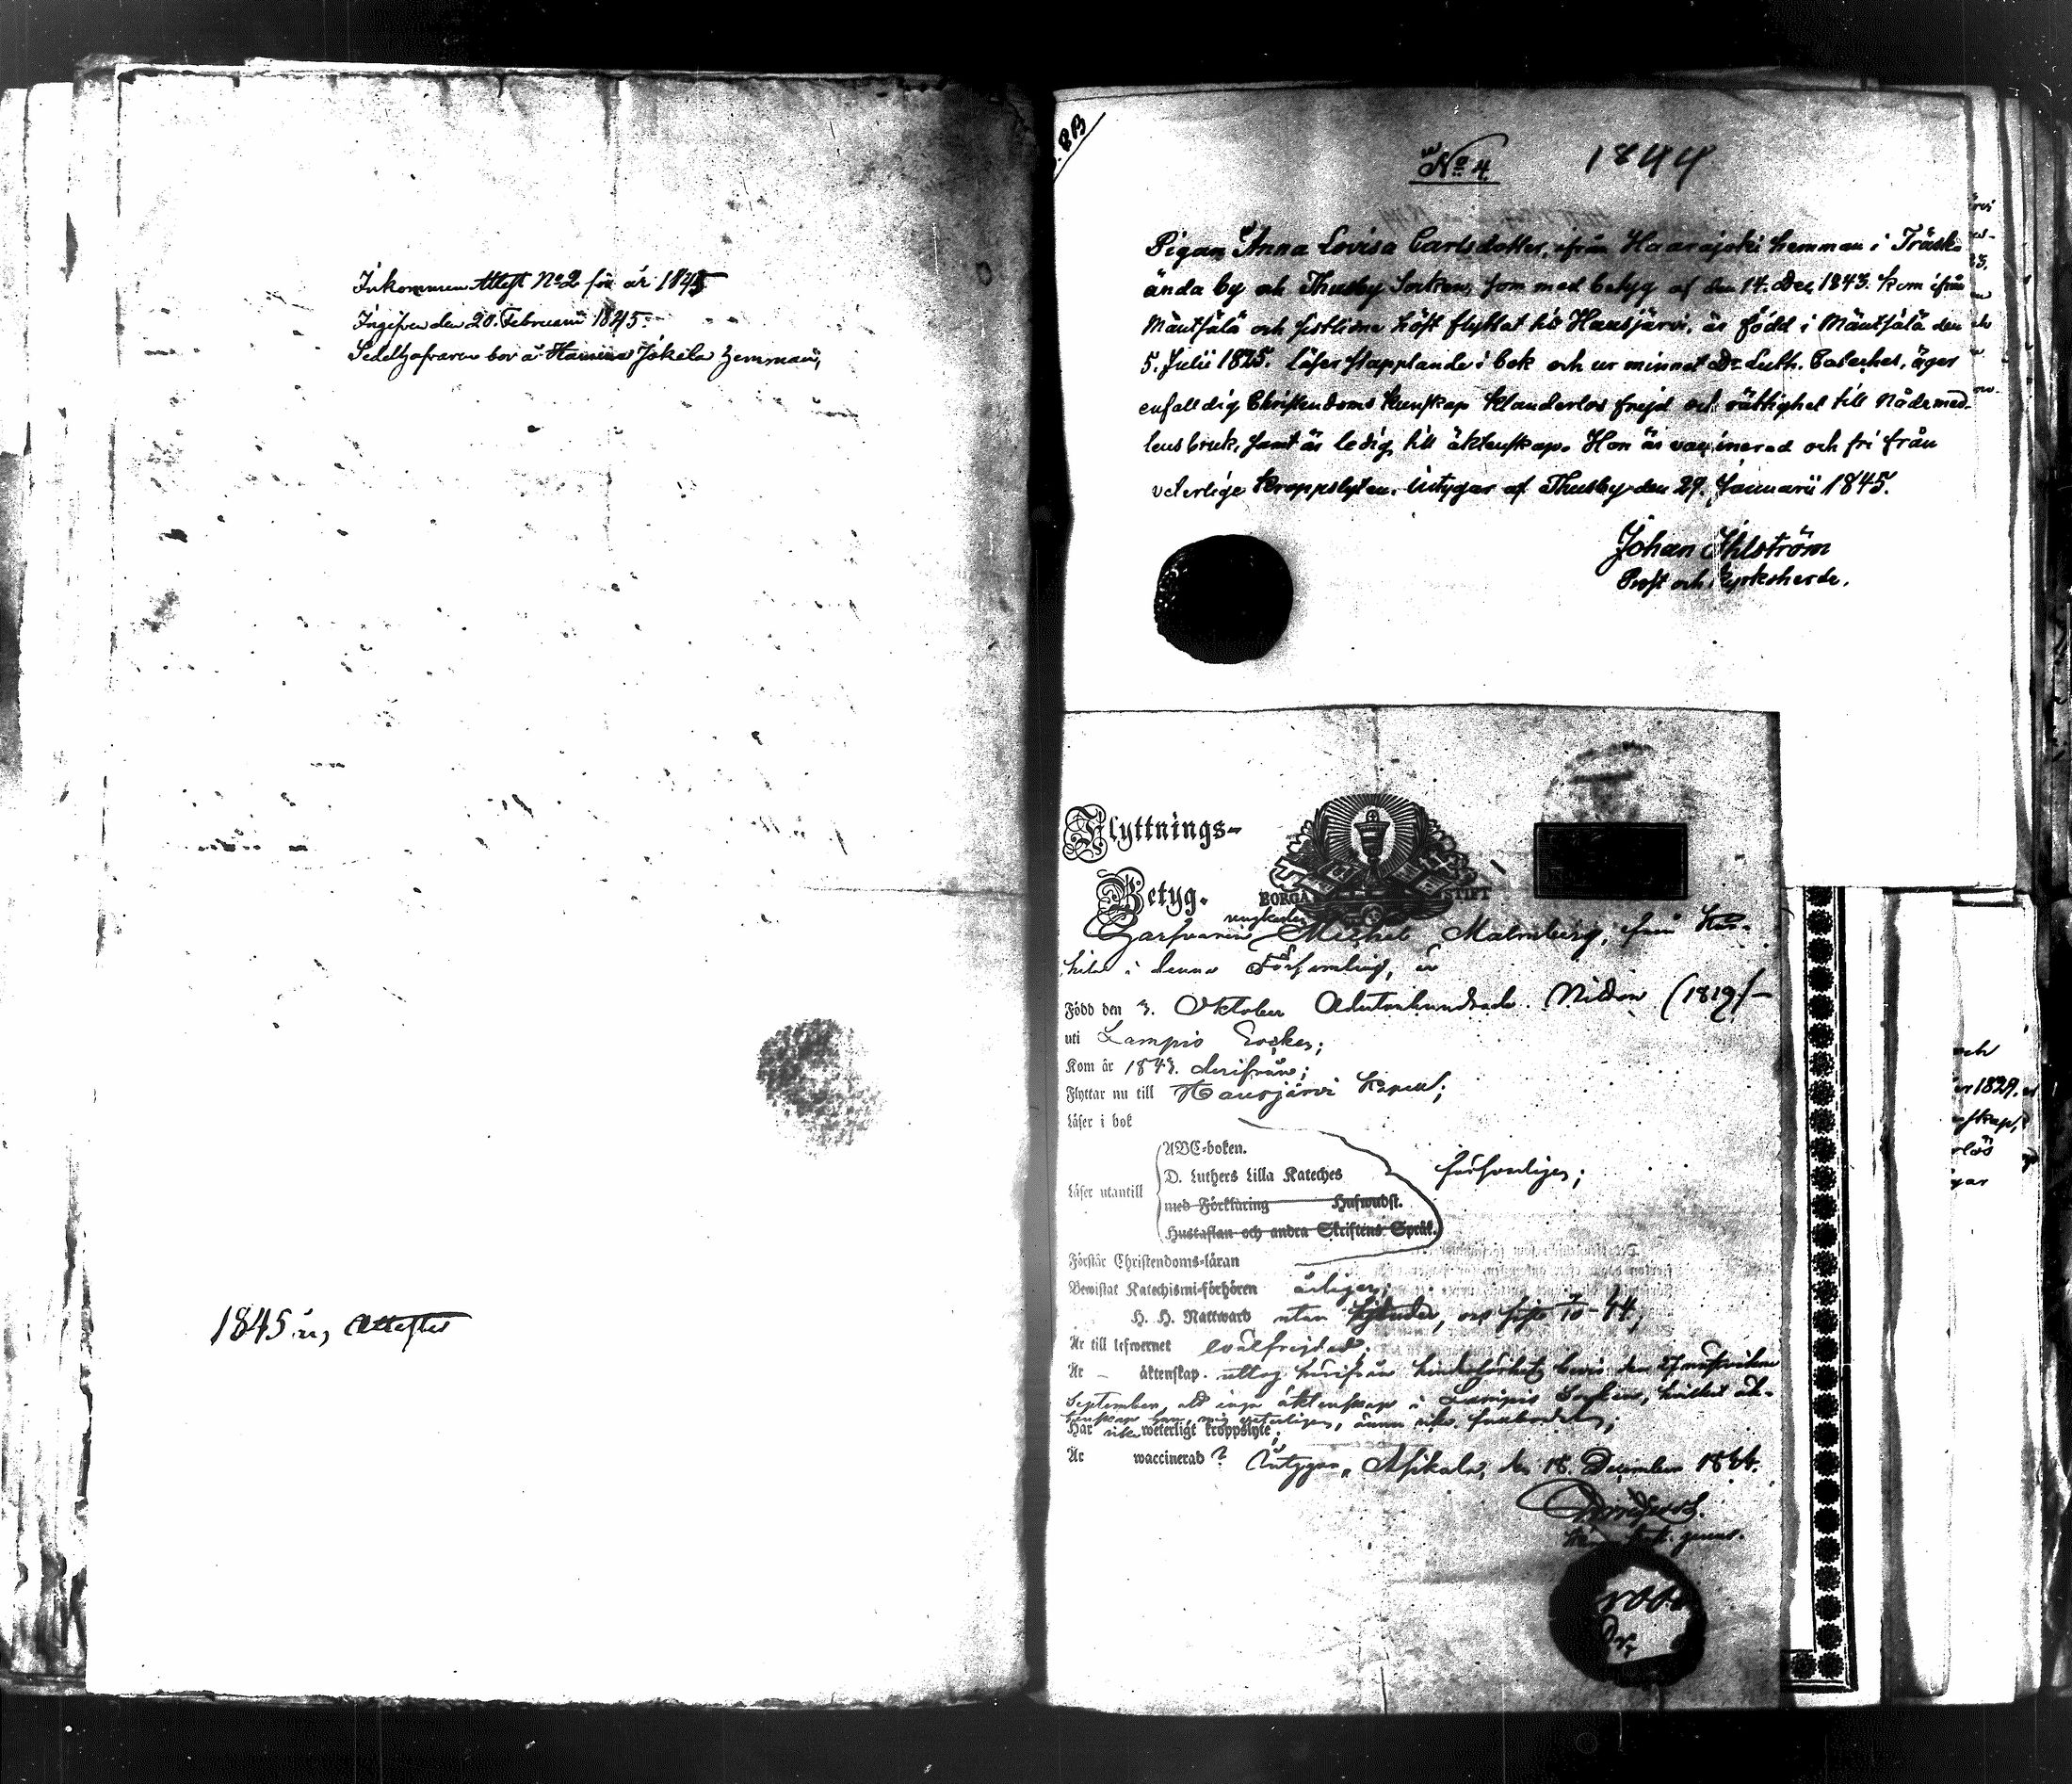 Inkommen Attest No 2 för år 1845
Ingifven den 20. Februarii 1845.
Sedelhafvaren bor å Jokela hemman,
1845 års Attester
8B
No 4. 1844
Pigan Anna Lovisa Carlsdotter, ifrån Haarajoki hemman i Träsk-
ända by och Thusby Socken, som med betyg af den 14. Dec. 1843. kom ifrån
Mäntsälä och sistlidne höst flyttat till Hausjärvi, är född i Mäntsälä den
5. Julii 1825. Läser stapplande i bok och ur minnet Dr. Luth. Cateches, äger
enfalldig Christendoms kunskap klanderlös frejd och rättighet till Nådemed-
lens bruk, samt är ledig till äktenskap. Hon är vaccinerad och fri från
veterlige kroppslyten. Intygar af Thusby den 27. Januarii 1845.
Johan Ihlström
Prost och Kyrkoherde.
Flyttnings-
Betyg.
BORGÅ STIFT
ungkarlen
Garfvaren Michel Malmberg, från
i denna Församling, är
Född den 3. Oktober Adertonhundrade Nitton (1819)
uti Lampis Socken;
Kom år 1843. derifrån;
Flyttar nu till Hausjärvi Kapell;
Läser i bok
ABC-boken.
Läser utantill D. Luthers Lilla Kateches försvarligen;
med Förklaring Hufwudst.
Hustaflan och andra Skriftens Språk.
Förstår Christendoms-läran
Bewistat Katechismi-förhören årligen;
H. H. Nattward utan
Är till lefwernet välfrejdad.
Är äktenskap. uttog härifrån bevis den
September, att ingå äktenskap i Lampis Socken, hvilket äk-
tenskap veterligen, ännu icke fullbordats;
Har icke weterligt kroppslyte;
Är waccinerad? Intygar, Asikkala, den 18 December 1844.
och
1829.
skap,
lös
gar